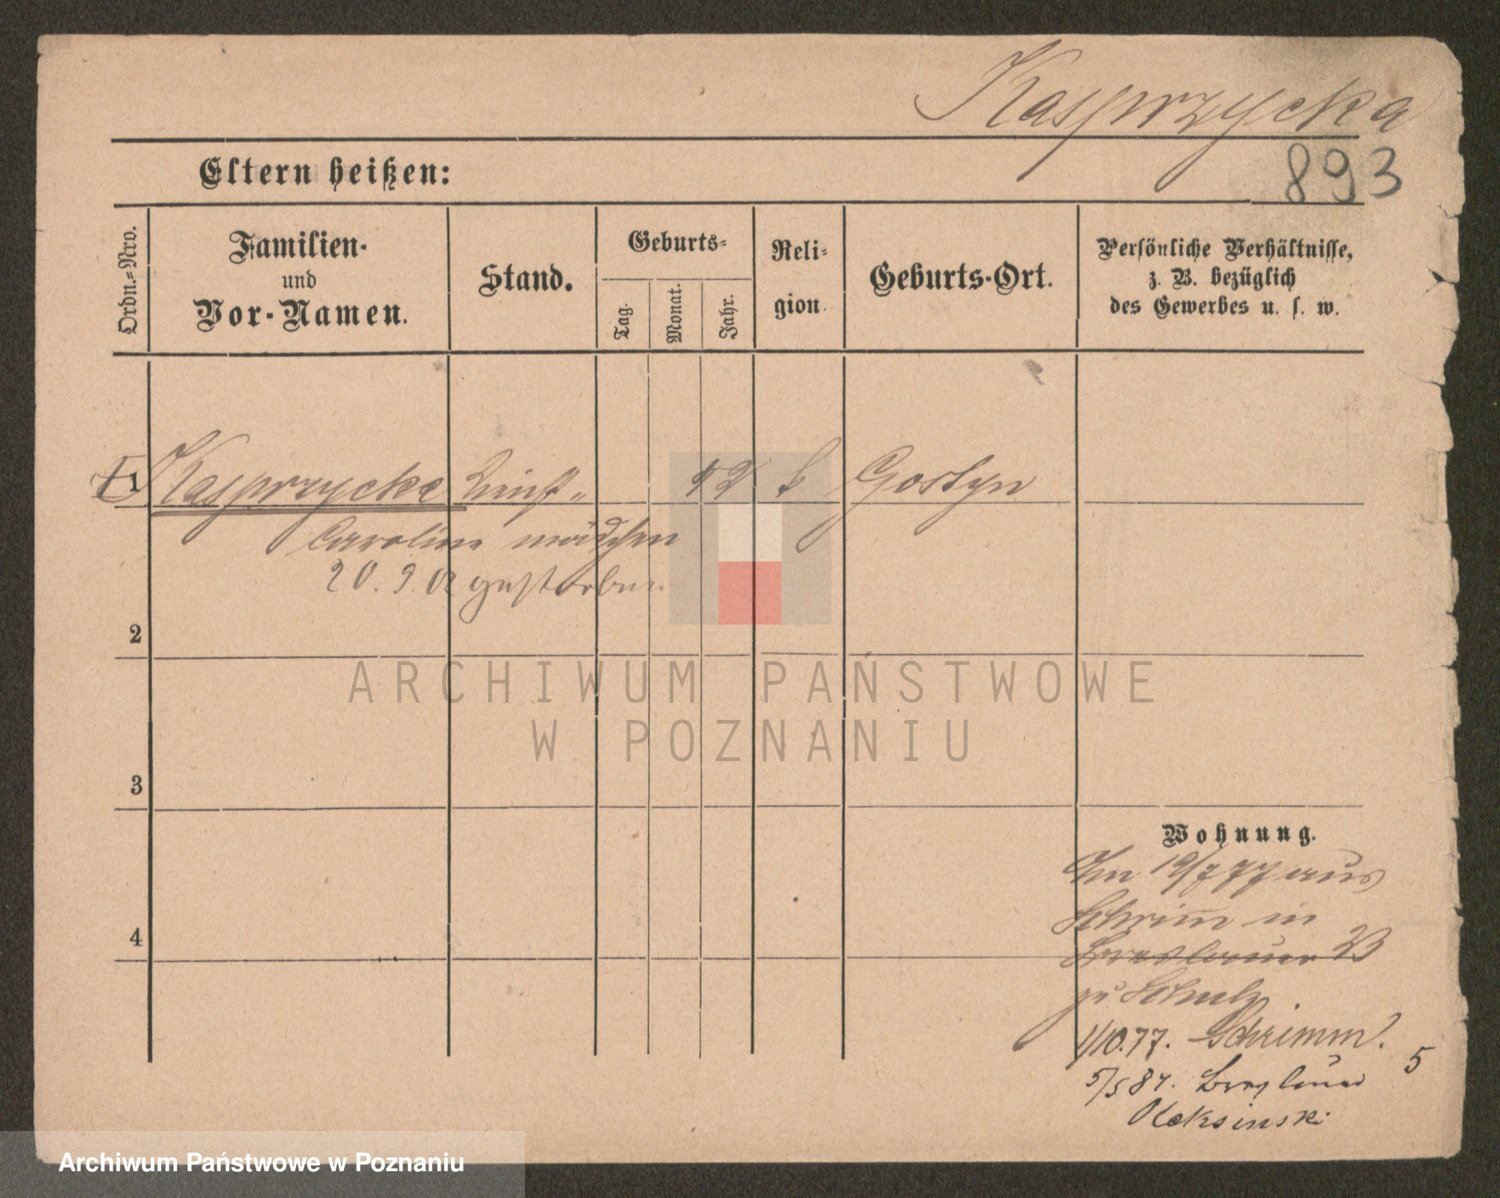 Kasprzycka
893
Eltern heißen:
Ordn.=Nro.
Familien-
und
Vor-Namen.
Stand.
Geburts=
Tag.
Monat.
Jahr.
Reli=
gion.
Geburts-Ort.
Persönliche Verhältnisse,
z. B. bezüglich
des Gewerbes u. s. w.
1 Kasprzycka 52 k Gostyn
Caroline mädchen
20. 9. 02 gestorben
2
ARCHIWUM PAŃSTWOWE
W POZNANIU
3
Wohnung.
Am 19/7 77 aus
Schrim in
4
Breslauer 23
zu Schulz.
1/10.77. Schrimm.
5/5 84. Breslauer 5
Oleksinski
Archiwum Państwowe w Poznaniu